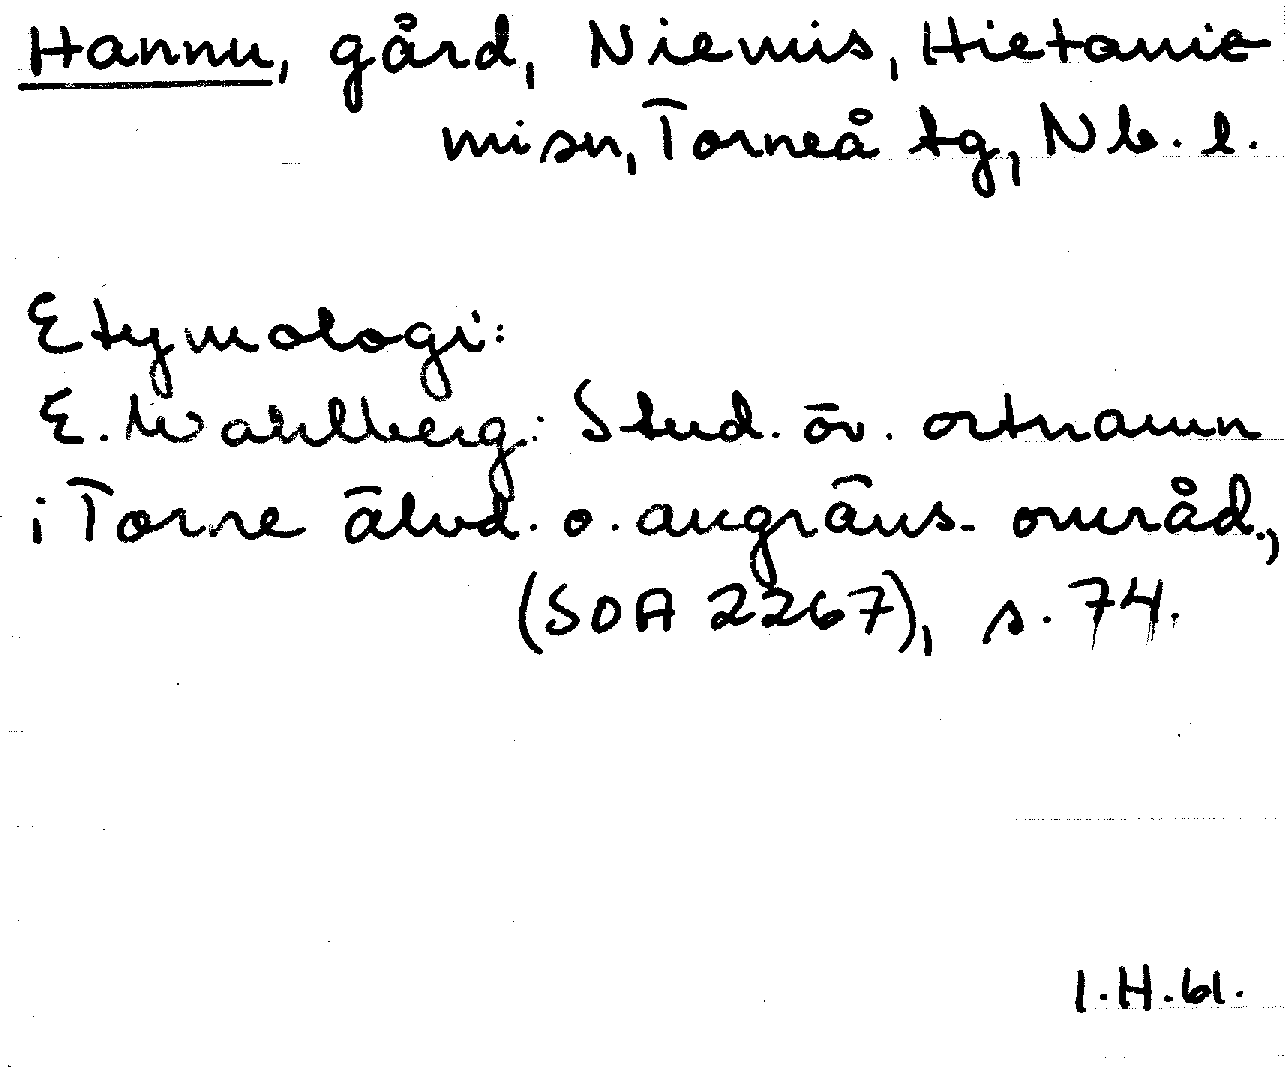 Hannu, gård, Niemis, Hietanie
misn, Torneå tg, Nb. l.
Etymologi:
E. Wahlberg: Stud. öv. ortnamn
i Torne älvd. o. angräns. områd.,
(SOA 2267), s. 74.
I.H.61.